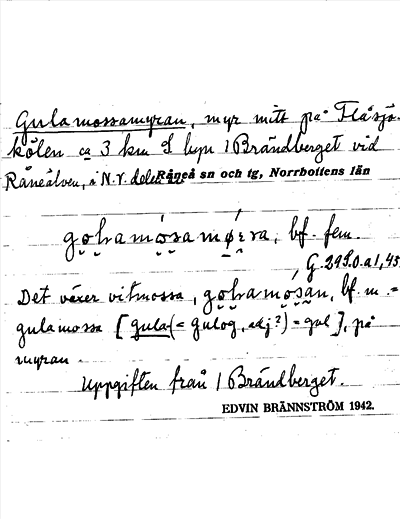 Gulamossamyran, myr mitt på Flåsjö-
kölen ca 3 km S byn / Brändberget vid
Råneälven, i N.V. delen av Råneå sn och tg, Norrbottens län
bf. fem.
G. 295.0.a1,45
Det växer vitmossa, bf. m. =
gulamossa [gula (= gulog, adj?) = gul], på
myran.
Uppgiften från / Brändberget.
EDVIN BRÄNNSTRÖM 1942.